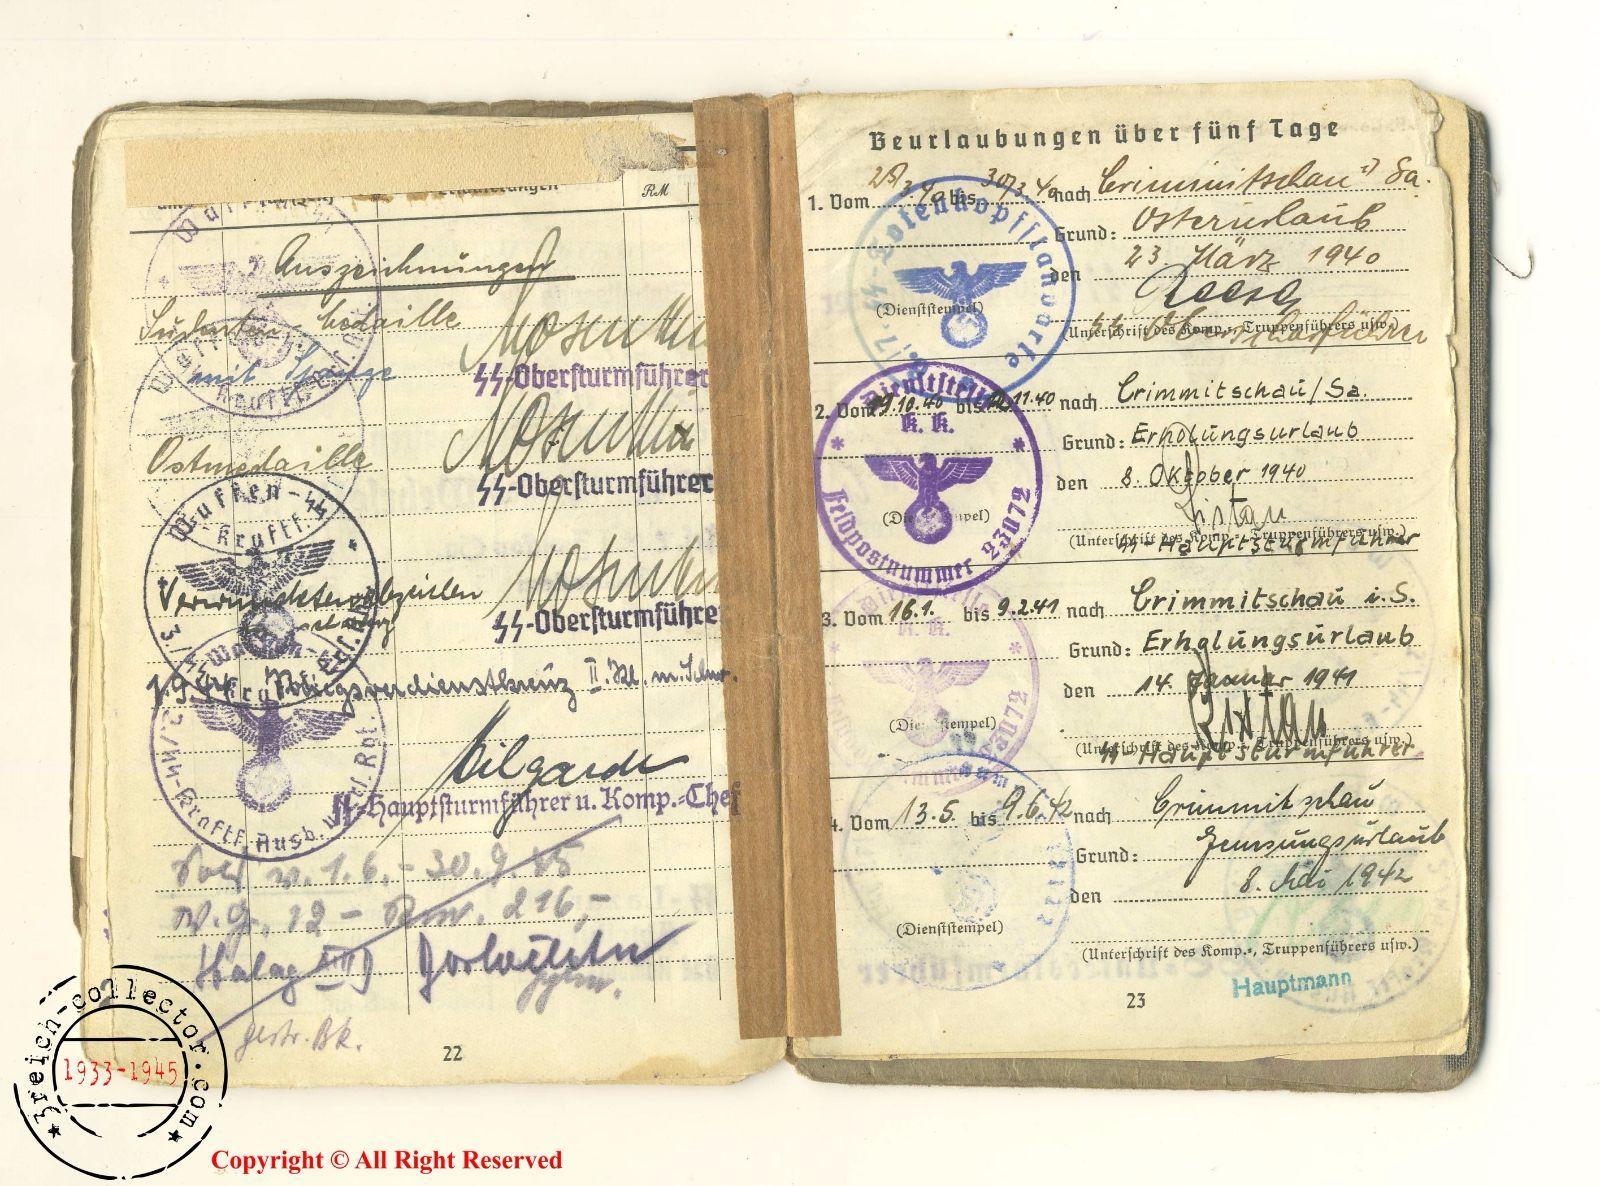 RM
Waffen-SS
Auszeichnungen
Sudeten-Medaille
mit Spange
SS-Obersturmführer
Ostmedaille
SS-Obersturmführer
Waffen-SS
Kraftf.
Verwundetenabzeichen
SS-Obersturmführe
1.9.44 Kriegsverdienstkreuz II. Kl. m. Schw.
2./SS-Kraftf. Ausb. u. Ers. Rgt.
Hilgarde
SS-Hauptsturmführer u. Komp.-Chef
1.6. - 30.9.45
12 - 216,-
gestr. Bk.
22
Beurlaubungen über fünf Tage
1. Vom 28/3 40 bis 30/3 40 nach Crimmitschau Sa.
Grund: Osterurlaub
den 23. März 1940
(Dienststempel)
(Unterschrift des Komp.-, Truppenführers usw.)
SS Oberscharführer
SS-Totenkopfstandarte
2. Vom 19.10.40 bis 11.40 nach Crimmitschau/Sa.
Grund: Erholungsurlaub
den 8. Oktober 1940
(Dienststempel)
(Unterschrift des Komp.-, Truppenführers usw.)
SS Hauptsturmführer
Dienststelle
K. K.
Feldpostnummer 23072
3. Vom 16.1. bis 9.2.41 nach Crimmitschau i. S.
Grund: Erholungsurlaub
den 14. Januar 1941
(Dienststempel)
(Unterschrift des Komp.-, Truppenführers usw.)
SS Hauptsturmführer
K. K.
23072
4. Vom 13.5. bis 9.6.42 nach Crimmitschau
Grund: Genesungsurlaub
den 8. Mai 1942
(Dienststempel)
(Unterschrift des Komp.-, Truppenführers usw.)
Hauptmann
23
3reich-collector.com
1933-1945
Copyright © All Right Reserved